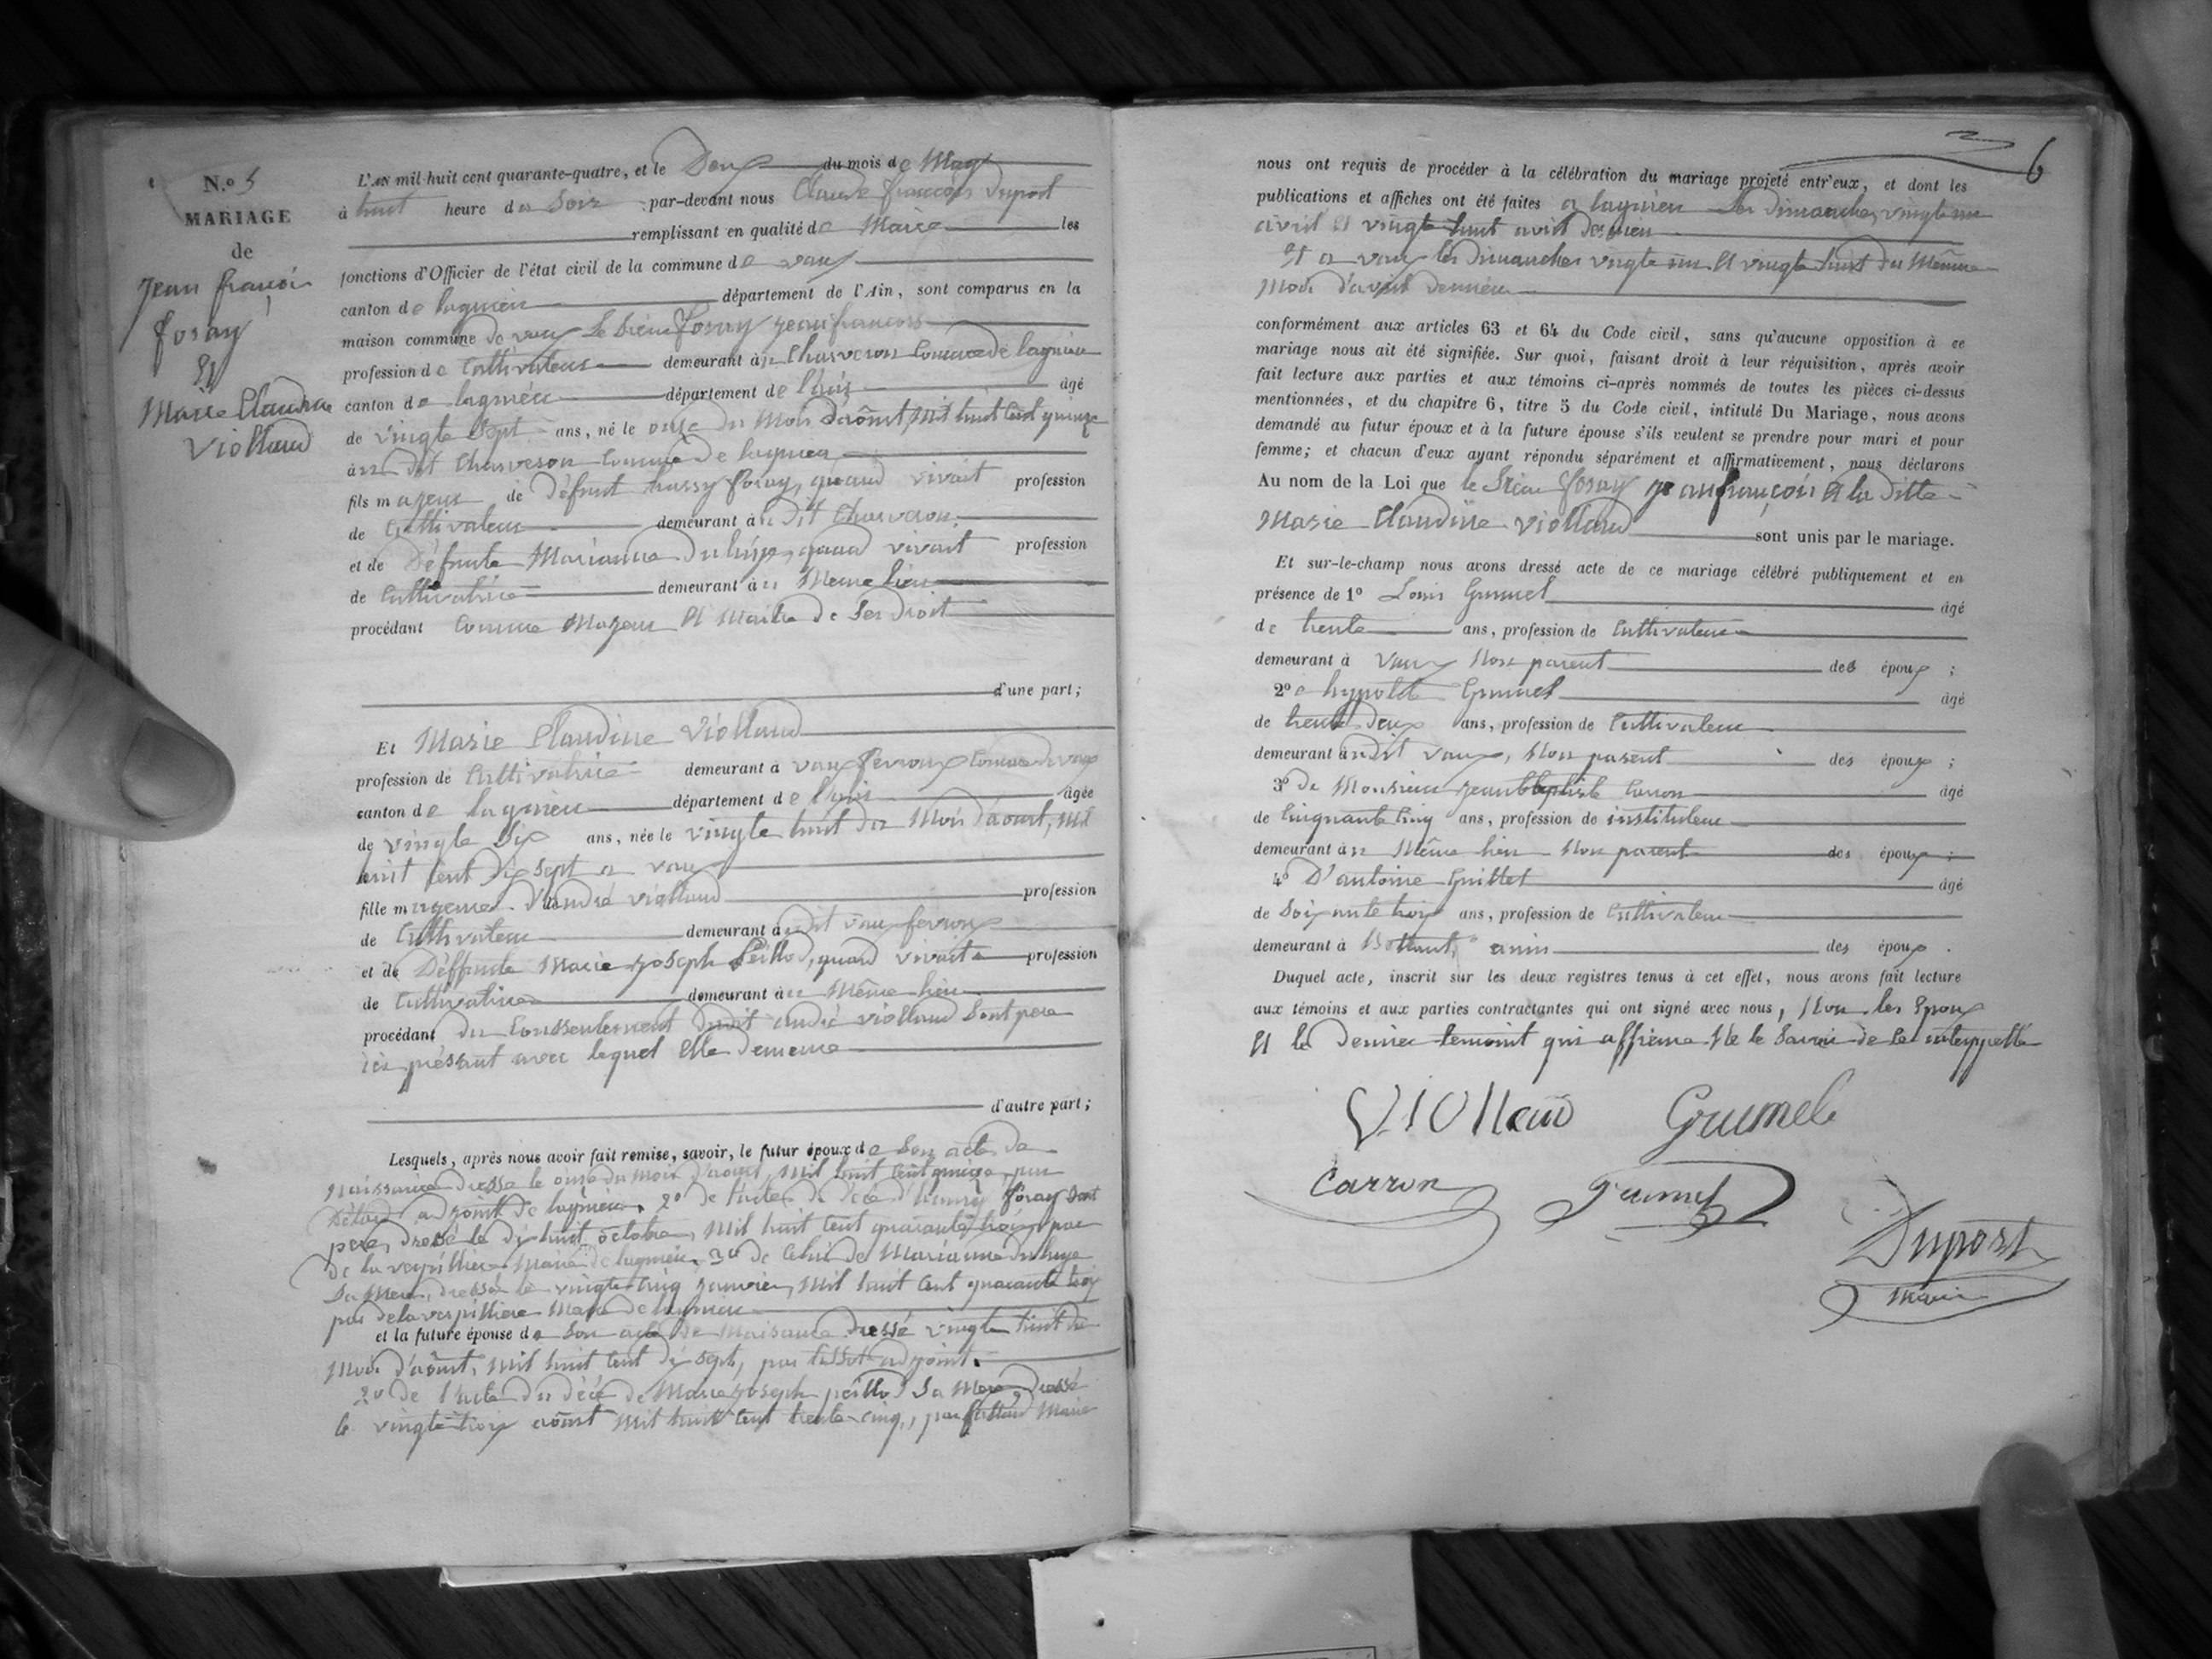 N.o 5
MARIAGE
de
Jean françois
foray
Et
Marie Claudine
Violland
L'AN mil huit cent quarante-quatre, et le Deux du mois de May
à huit heure du Soir par-devant nous Claude françois Dupost
remplissant en qualité de Maire les
fonctions d'Officier de l'état civil de la commune de vaux
canton de lagnieu département de l'Ain, sont comparus en la
maison commune de vaux le Sieur foray jean françois
profession de Cultivateur demeurant à Charveron Commune de lagnieu
canton de lagnieu département de l'ain âgé
de vingte Sept ans, né le onze du Mois d'août, Mil huit Cent quinze
à dit Charveron Commune de lagnieu
fils majeur de défunt foray, quand vivait profession
de Cultivateur demeurant à dit Charveron
et de Défunte Marianne quand vivait profession
de Cultivatrice demeurant au Meme lieu
procédant Comme Majeur Et Maitre de Ses droit
d'une part;
Et Marie Claudine Viollaud
profession de Cultivatrice demeurant à vaux fevroux Commune de vaux
canton de lagnieu département de l'ain âgée
de vingte Six ans, née le vingte huit du Mois d'aoust, Mil
huit Cent Dix Sept a vaux
fille majeure d'andré viollaud profession
de Cultivateur demeurant à dit vaux fevroux
et de Deffunte Marie joseph Peillod, quand vivait profession
de Cultivatrice demeurant au Même lieu
procédant du Conssentement dudit andré viollaud Sont pere
ici préssant avec lequel Elle demeure
d'autre part;
Lesquels, après nous avoir fait remise, savoir, le futur époux de Son acte de
Naissance dressé le onze du mois d'aoust, Mil huit Cent quinze, par
adjoint de lagnieu, 2º de l'acte de décé foray Sont
pere, dressé le dix huit octobre, Mil huit Cent quarante trois, par
de la verpilliere Maire de lagnieu, 3º de Celui de Marianne
Sa Mere, dressé le vingte Cinq janvier, Mil huit Cent quarante trois
par de la verpilliere Maire de lagnieu
et la future épouse de Son acte de Naisance dressé vingte huit du
Mois d'août, Mil huit Cent dix Sept, par tissot adjoint.
2º de l'acte du décé de Marie joseph peillod Sa Mere, dressé
le vingte trois août Mil huit Cent trente cinq, par Maire
6
nous ont requis de procéder à la célébration du mariage projeté entr'eux, et dont les
publications et affiches ont été faites a lagnieu les dimanches vingte un
avril Et vingte huit avril dernier
Et a vaux les dimanches vingte un Et vingte huit du Même
Mois d'avril dernier
conformément aux articles 63 et 64 du Code civil, sans qu'aucune opposition à ce
mariage nous ait été signifiée. Sur quoi, faisant droit à leur réquisition, après avoir
fait lecture aux parties et aux témoins ci-après nommés de toutes les pièces ci-dessus
mentionnées, et du chapitre 6, titre 5 du Code civil, intitulé Du Mariage, nous avons
demandé au futur époux et à la future épouse s'ils veulent se prendre pour mari et pour
femme; et chacun d'eux ayant répondu séparément et affirmativement, nous déclarons
Au nom de la Loi que le Sieur foray jean françois Et la ditte
Marie Claudine Viollaud sont unis par le mariage.
Et sur-le-champ nous avons dressé acte de ce mariage célébré publiquement et en
présence de 1º Louis Grumel âgé
de trente ans, profession de Cultivateur
demeurant à Vaux Non parent des époux ;
2º hypolite Grumel âgé
de trente Deux ans, profession de Cultivateur
demeurant à dit vaux, Non parent des époux ;
3º de Monsieur jean Baptiste Carron âgé
de Cinquante Cinq ans, profession de instituteur
demeurant au Même lieu Non parent des époux ;
4º D'antoine Guillet âgé
de Soixante trois ans, profession de Cultivateur
demeurant à amis des époux .
Duquel acte, inscrit sur les deux registres tenus à cet effet, nous avons fait lecture
aux témoins et aux parties contractantes qui ont signé avec nous, Non les Epoux
Et le Dernier temoint qui affirme Ne le Savoir de Ce interppellé
VIOllaud Grumel
Carron Grumel
Dupost
Maire